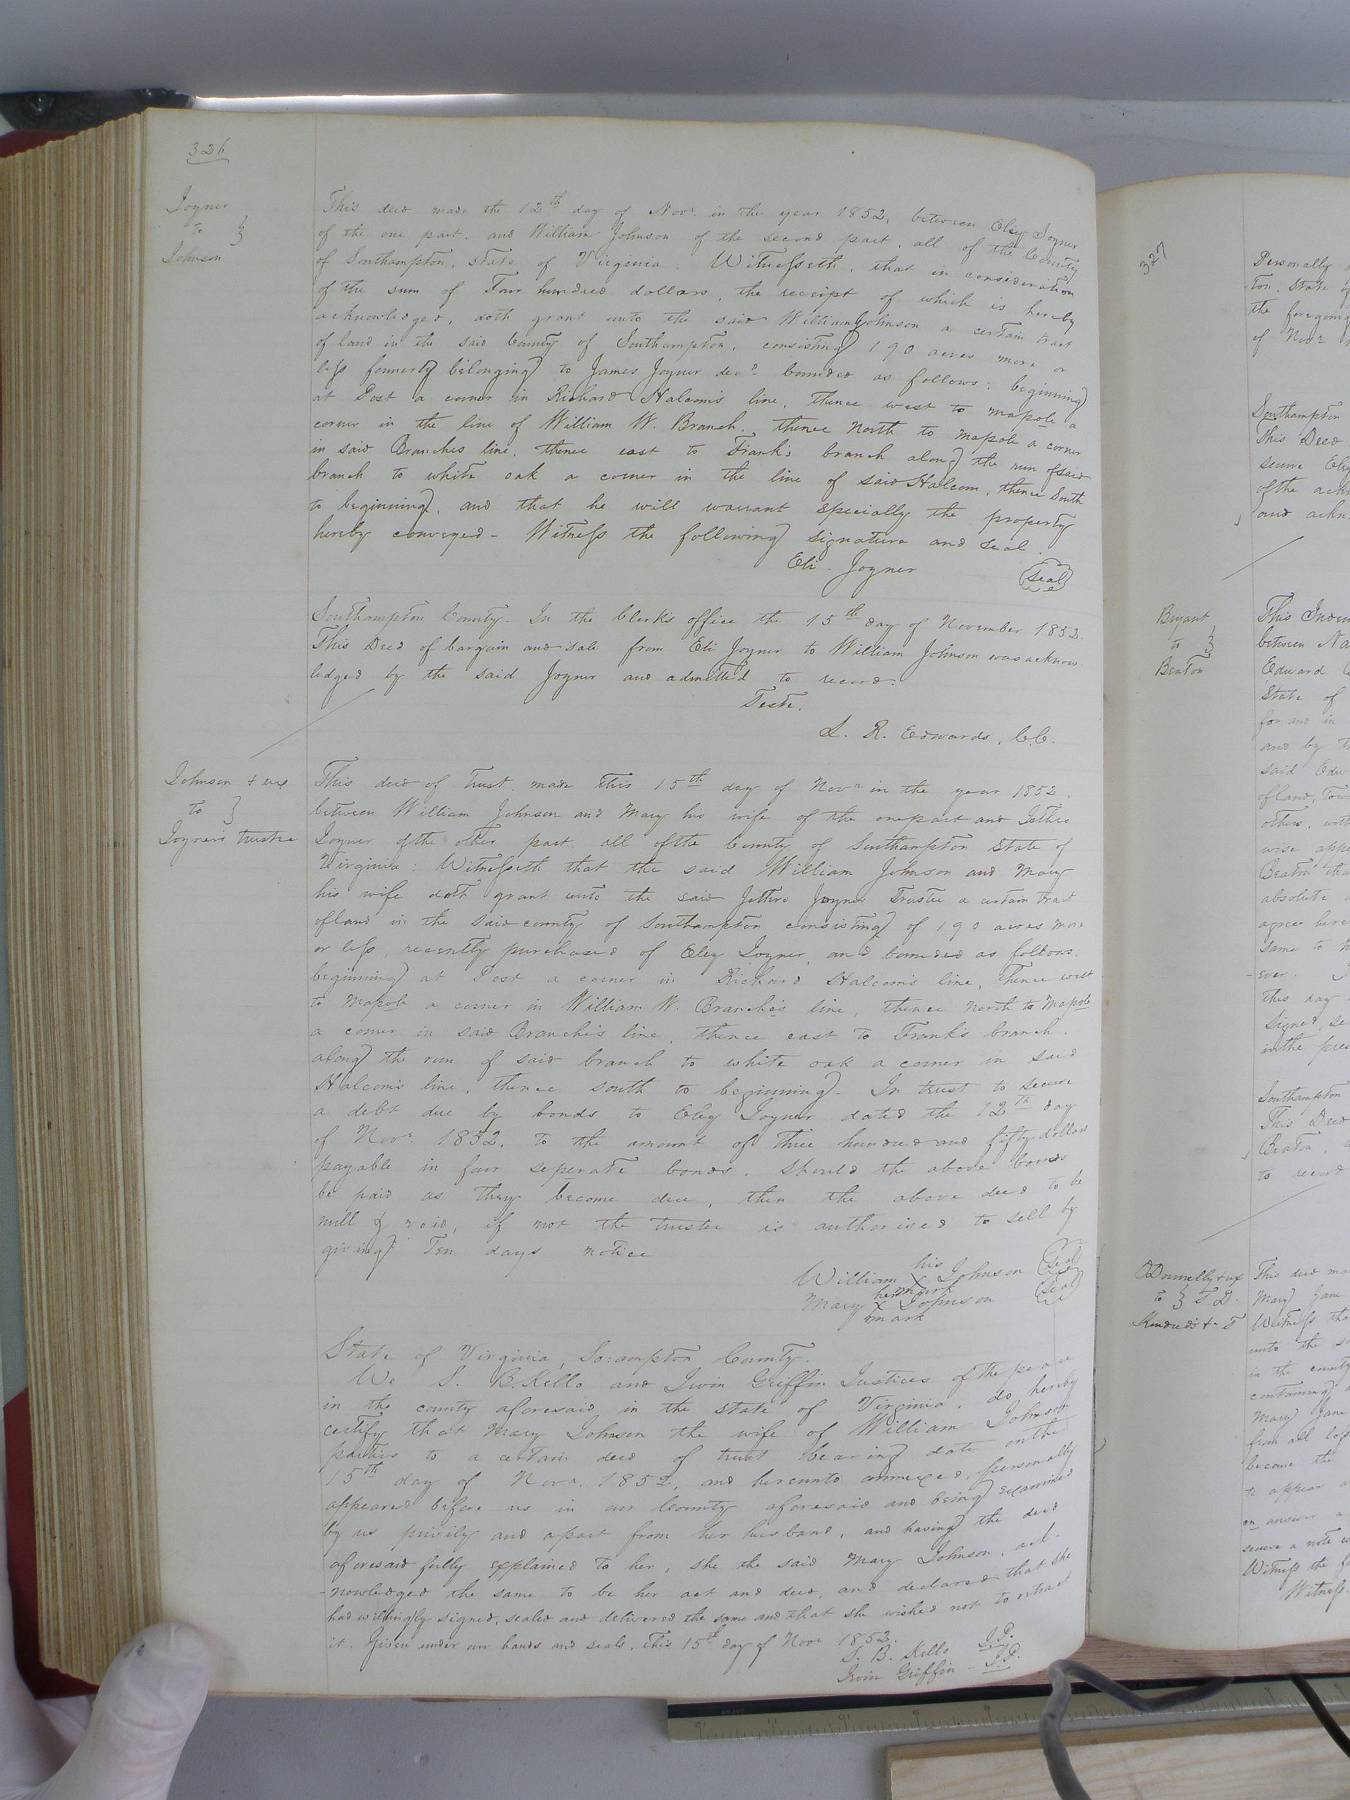 326
Joyner
to
Johnson
This deed made the 12th day of Novr. in the year 1852, between Eley Joyner
of the one part. and William Johnson of the second part, all of the County
of Southampton, State of Virginia. Witnesseth, that in consideration
of the sum of Four hundred dollars, the receipt of which is hereby
acknowledged, doth grant unto the said William Johnson a certain tract
of land in the said County of Southampton, consisting 190 acres more or
less formerly belonging to James Joyner decd. bounded as follows; beginning
at Post a corner in Richard Halcom's line, thence west to mapole a
corner in the line of William W. Branch, thence North to mapole a corner
in said Branches line, thence east to Frank's branch along the run of said
branch to white oak a corner in the line of said Halcom, thence South
to beginning, and that he will warrant specially the property
hereby conveyed - Witness the following signature and seal.
Eli. Joyner (seal)
Southampton County. In the Clerk's office the 15th day of November 1852.
This Deed of bargain and sale from Eli Joyner to William Johnson was acknow
ledged by the said Joyner and admitted to record.
Teste.
L. R. Edwards, C.C.
Johnson + ux
to
Joyner trustee
This deed of trust made this 15th day of Novr in the year 1852,
between William Johnson and Mary his wife of the one part and Jethro
Joyner of the other part. all of the County of Southampton State of
Virginia: Witnesseth that the said William Johnson and Mary
his wife doth grant unto the said Jethro Joyner Trustee a certain tract
of land in the said county of Southampton consisting of 190 acres more
or less, recently purchased of Eley Joyner, and bounded as follows.
beginning at Post a corner in Richard Halcom's line, thence west
to Mapole a corner in William W. Branche's line, thence north to Mapole
a corner in said Branche's line, thence east to Frank's branch.
along the run of said branch to white oak a corner in said
Halcom's line, thence south to beginning. In trust to secure
a debt due by bonds to Eley Joyner dated the 12th day
of Novr. 1852, to the amount of three hundred and fifty dollars
payable in four seperate bonds. Should the above bonds
be paid as they become due, then the above deed to be
null & void, if not the trustee is authorised to sell by
giving Ten days notice
William his X mark Johnson (seal)
Mary her X mark Johnson (seal)
State of Virginia, Sohampton County.
We S. B. Kello and Irvin Griffin Justices of the peace
in the county aforesaid in the state of Virginia, do hereby
certify that Mary Johnson the wife of William Johnson
parties to a certain deed of trust bearing date on the
15th day of Novr. 1852, and hereunto annexed, personally
appeared before us in our County aforesaid and being examined
by us privily and apart from her husband, and having the deed
aforesaid fully explained to her, she the said Mary Johnson, ack-
nowledged the same to be her act and deed, and declared that she
had willingly signed, sealed and delivered the same and that she wished not to retract
it. Given under our hands and seals, this 15th day of Novr 1852.
S. B. Kello J.P.
Irvin Griffin - J.P.
327
Personally
ton, State of
the foregoing
of Novr
Southampton
This Deed
secure
of the
and
Bryant
to
Beaton
This Inden
between
Edward
State of
for and in
and by
said
of land,
others,
wise
Beaton tha
absolute
agree
same to
ever.
this day
signed, se
in the pres
Southampton
This Deed
Beaton,
to record
O'Donnelly + ux
to T.D.
This deed ma
Mary Jane
Witness tha
unto the
in the county
containing
Mary Jane
from all
become the
to appear
an answer
secure a note
Witness the
Witness.